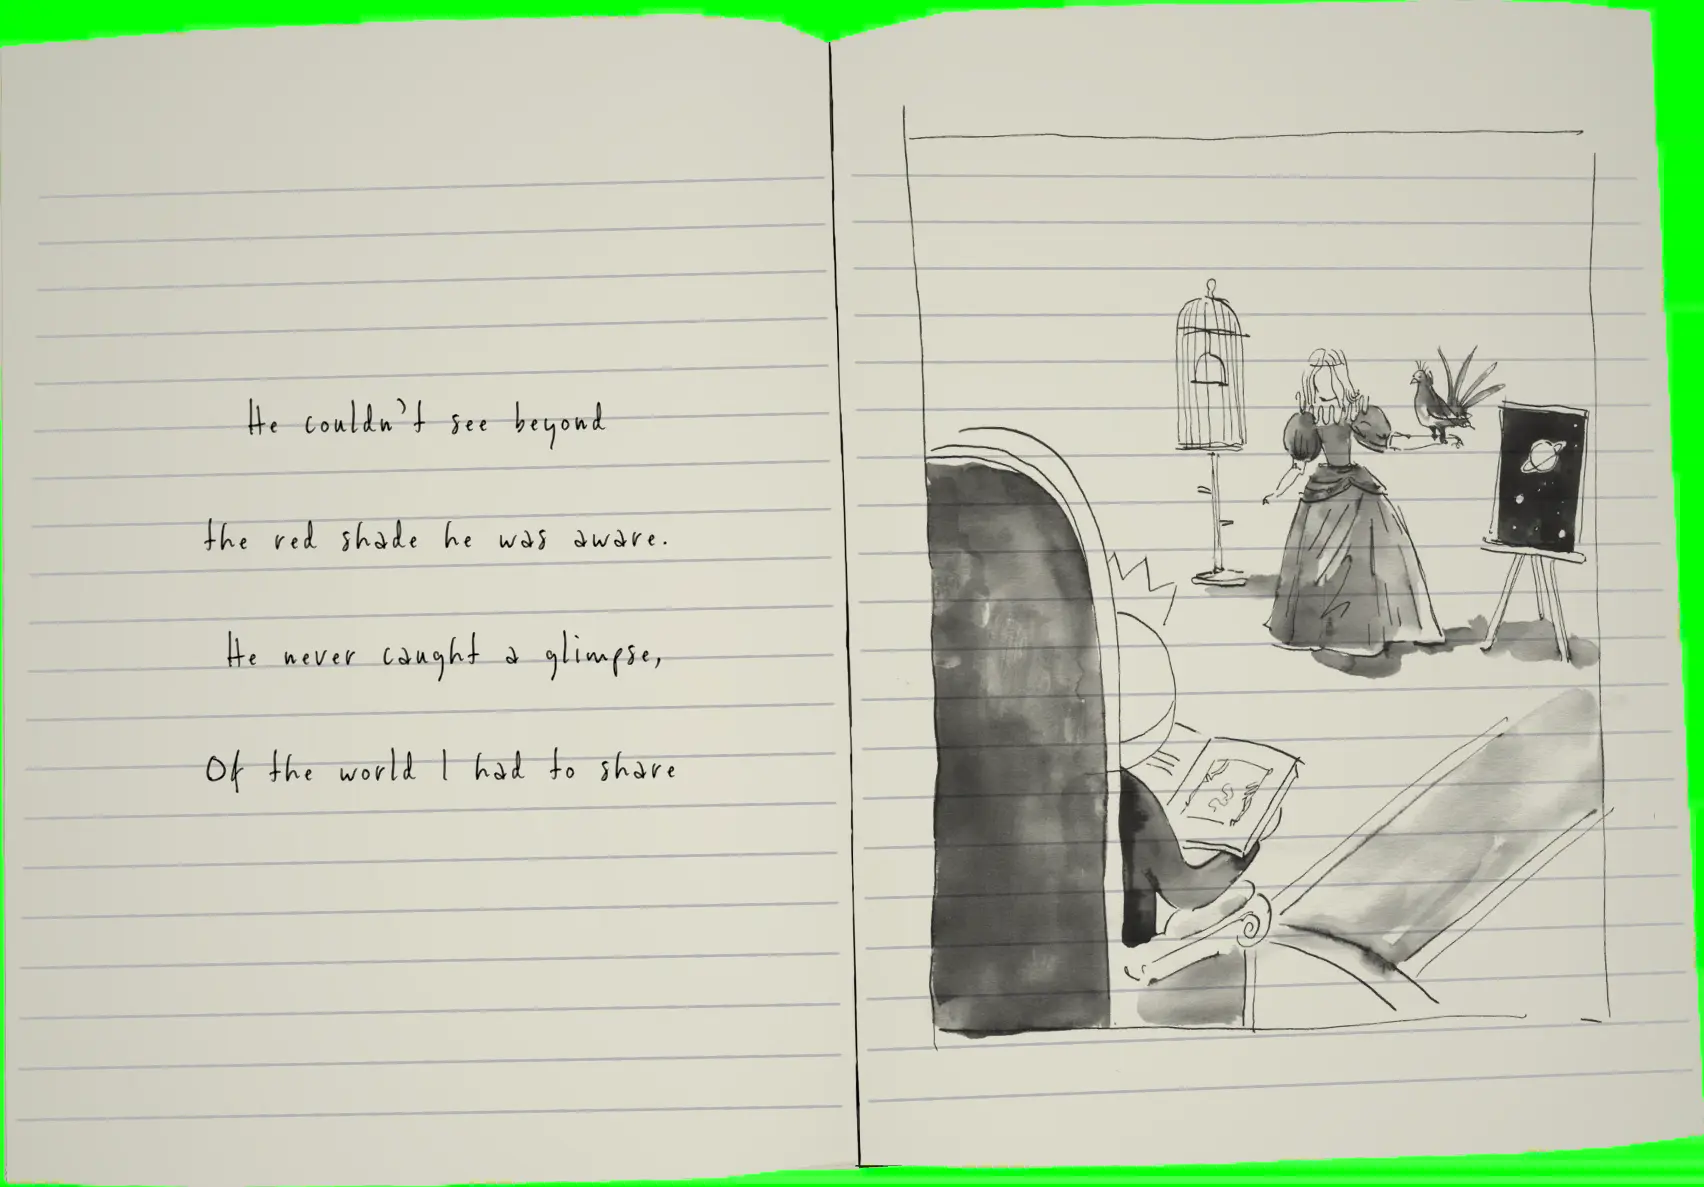 He couldn't see beyond
the red shade he was aware.
He never caught a glimpse,
Of the world I had to share